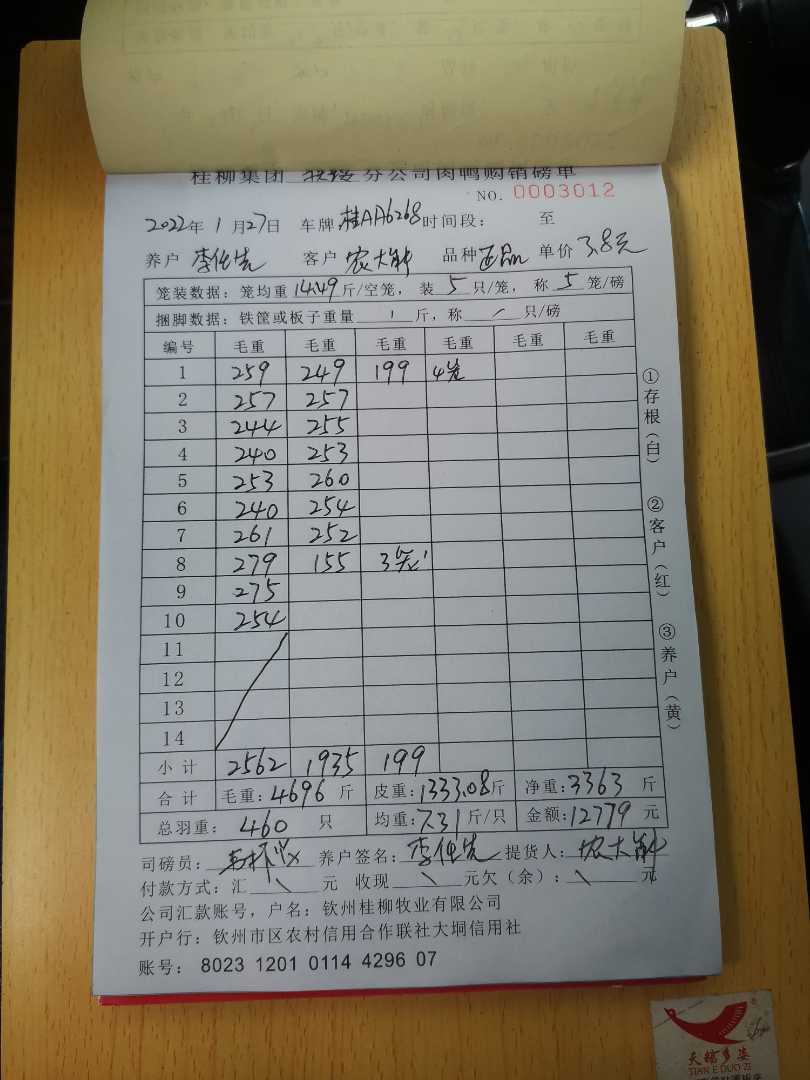 桂柳集团 分公司肉鸭购销磅单
NO. 0003012
2022年1月27日 车牌 桂AA6268 时间段： 至
养户 李仕先 客户 农大新 品种 正品 单价 3.8元
笼装数据：笼均重14.49斤/空笼，装5只/笼，称5笼/磅
捆脚数据：铁筐或板子重量 斤，称 只/磅
编号 毛重 毛重 毛重 毛重 毛重 毛重
1 259 249 199 4笼
2 257 257
3 244 255
4 240 253
5 253 260
6 240 254
7 261 252
8 279 155 3笼
9 275
10 254
11
12
13
14
小计 2562 1935 199
合计 毛重：4696斤 皮重：1333.08斤 净重：3363斤
总羽重：460只 均重：7.31斤/只 金额：12779元
司磅员： 养户签名：李仕先 提货人：农大新
付款方式：汇 元 收现 元欠（余）： 元
公司汇款账号，户名：钦州桂柳牧业有限公司
开户行：钦州市区农村信用合作联社大垌信用社
账号：8023 1201 0114 4296 07
①存根（白） ②客户（红） ③养户（黄）
天鹅多姿
TIAN E DUO ZI